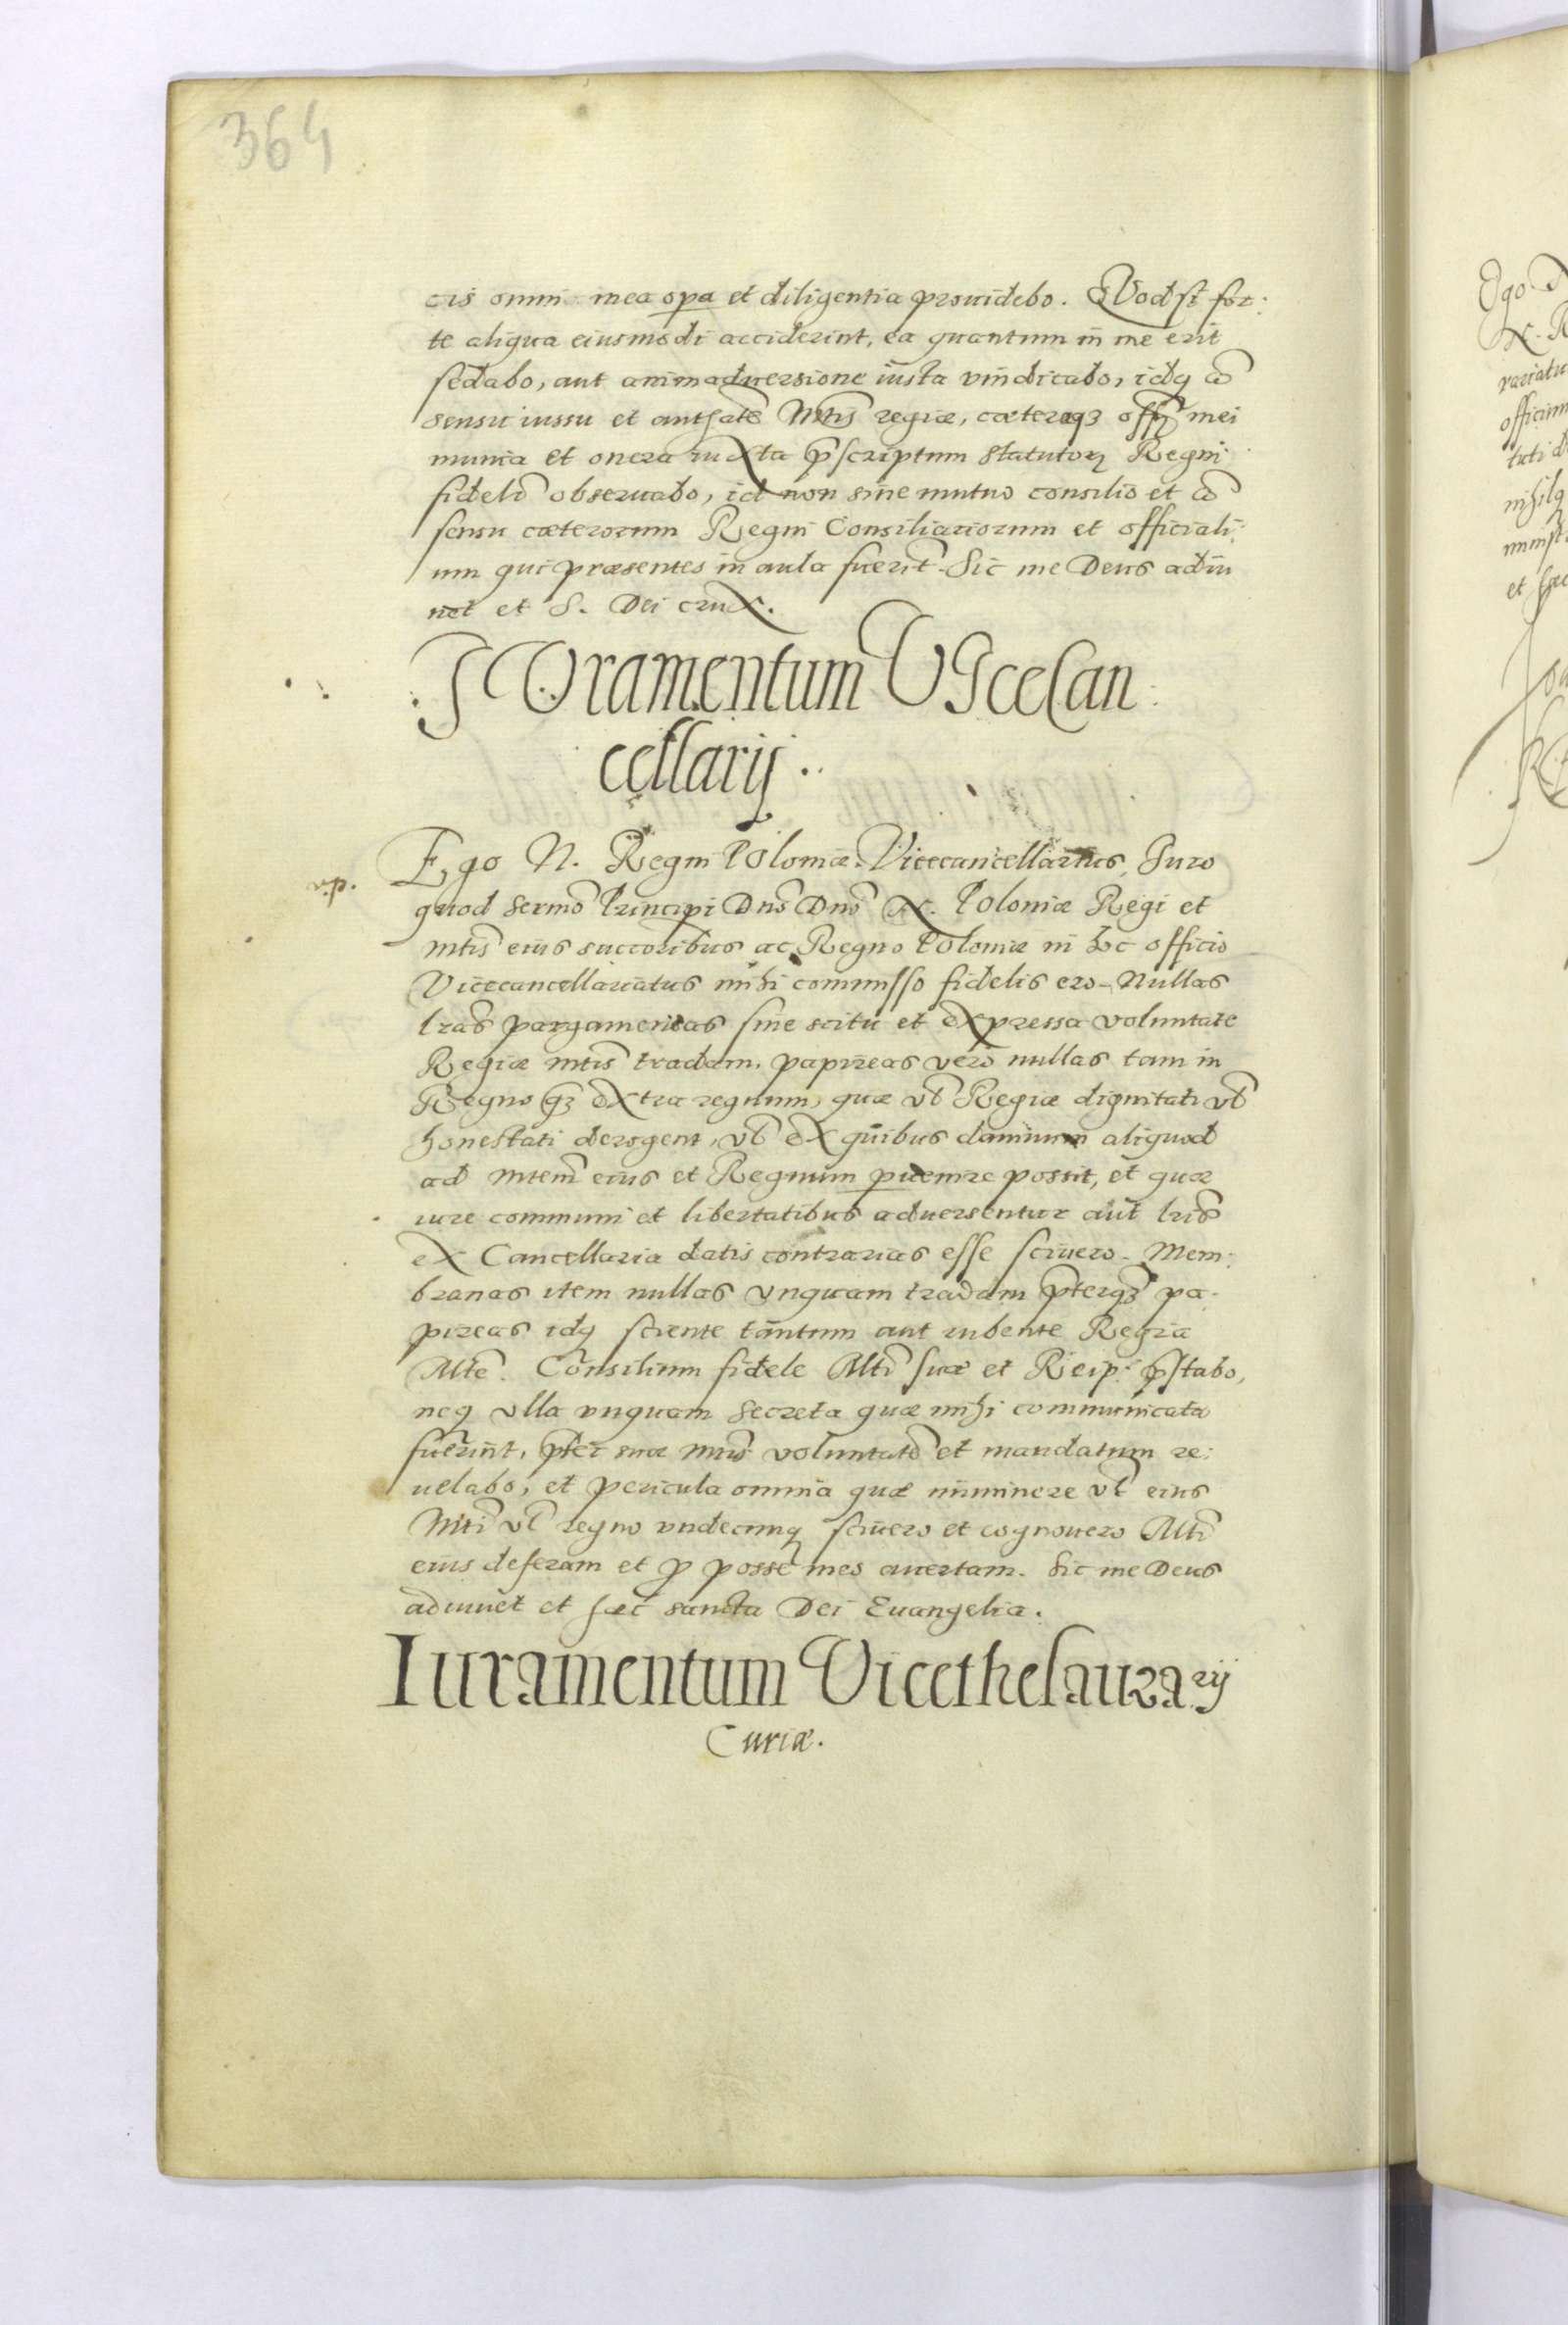 364
cis omni mea opa et diligentia prouidebo. QVod si for:
te aliqua eiusmodi acciderint, ea quantum in me erit
sedabo, aut animaduersione iusta vindicabo, idq₃ cō
sensu iussu et authatē Mtis regiæ, cæteraq₃ offij mei
munia et onera iuxta p̄scriptum Statutorꝫ Regni
fidelr̄ obseruabo, id non sine mutuo consilio et cō
sensu cæterorum Regni Consiliariorum et officiali:
um qui præsentes in aula fuerīt. Sic me Deus adiu
uet et S. Dei crux.
IVramentum VIcecan:
cellarij.
v.p.
Ego N. Regni POloniæ Vicecancellarius, Juro
quod Sermō Principi Dnō Dnō N. POloniæ Regi et
mtis eius succoribus ac Regno POloniæ in hoc officio
Vicecancellariatus mihi commisso fidelis ero. Nullas
lras pargameneas sine scitu et expressa voluntate
Regiæ mtis tradam. papireas vero nullas tam in
Regno q̄₃ extra regnum, quæ vl̄ Regiæ dignitati vl̄
honestati derogent, vl̄ ex quibus damnum aliquod
ad mtem̄ eius et Regnum puenire possit, et quæ
iure communi et libertatibus aduersentur aut lris
ex Cancellaria datis contrarias esse sciuero. Mem:
branas item nullas vnquam tradam p̄terq₃ pa-
pireas idq₃ sciente tantum aut iubente Regia
Mte. Consilium fidele Mti suæ et Reip: p̄stabo,
neq₃ vlla vnquam secreta quæ mihi communicata
fuerint, p̄ter suæ mtis voluntatē et mandatum re:
uelabo, et pericula omnia quæ imminere vl̄ eius
Mti vl̄ regno vndecunq₃ sciuero et cognouero Mti
eius deferam et p̱ posse meo auertam. Sic me Deus
adiuuet et hæc sancta Dei Euangelia.
Iuramentum Vicethesaurarij
Curiæ.